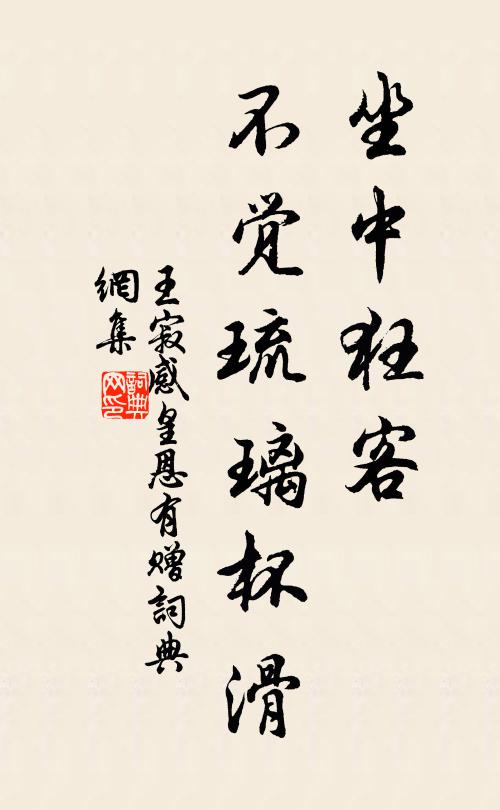 坐中狂客
不觉琉璃杯滑
王寂感皇恩有赠詞典
網集
詞典网印